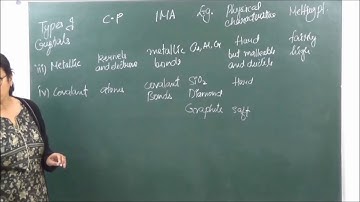 Types of Crystals C-P IMA Eg. Physical characteristics Melting pt.
iii) Metallic Kernels and electrons metallic bonds Hard but malleable and ductile fairly high
iv) Covalent atoms covalent Bonds SiO2 Diamond Hard
Graphite soft